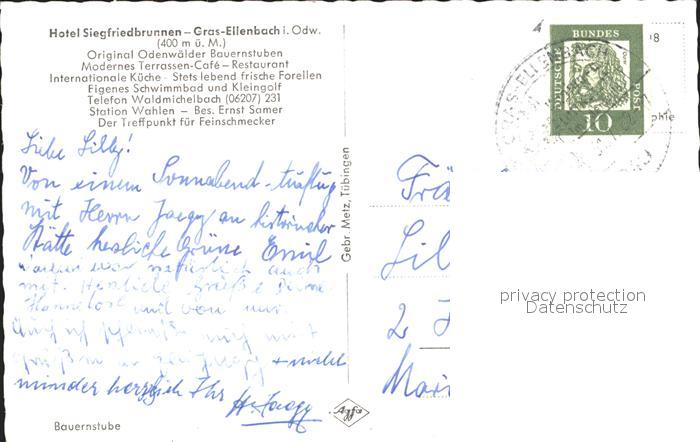 Hotel Siegfriedbrunnen – Gras-Ellenbach i. Odw.
(400 m ü. M.)
Original Odenwälder Bauernstuben
Modernes Terrassen-Café – Restaurant
Internationale Küche · Stets lebend frische Forellen
Eigenes Schwimmbad und Kleingolf
Telefon Waldmichelbach (06207) 231
Station Wahlen – Bes. Ernst Samer
Der Treffpunkt für Feinschmecker
Liebe Lilly!
Von einem Sonnabend-Ausflug
mit Herrn Jaegy an historischer
Stätte herzliche Grüße Emil
natürlich auch
mit. Herzliche Grüße Deine
Hannelore und von mir
Auch ich
+ nicht
minder herzlich Ihr H. Jaegy
Bauernstube
Gebr. Metz, Tübingen
Agfa
GRAS-ELLENBACH
BUNDES
DEUTSCHE
POST
10
18
phie
Frä
Lil
2
privacy protection
Datenschutz